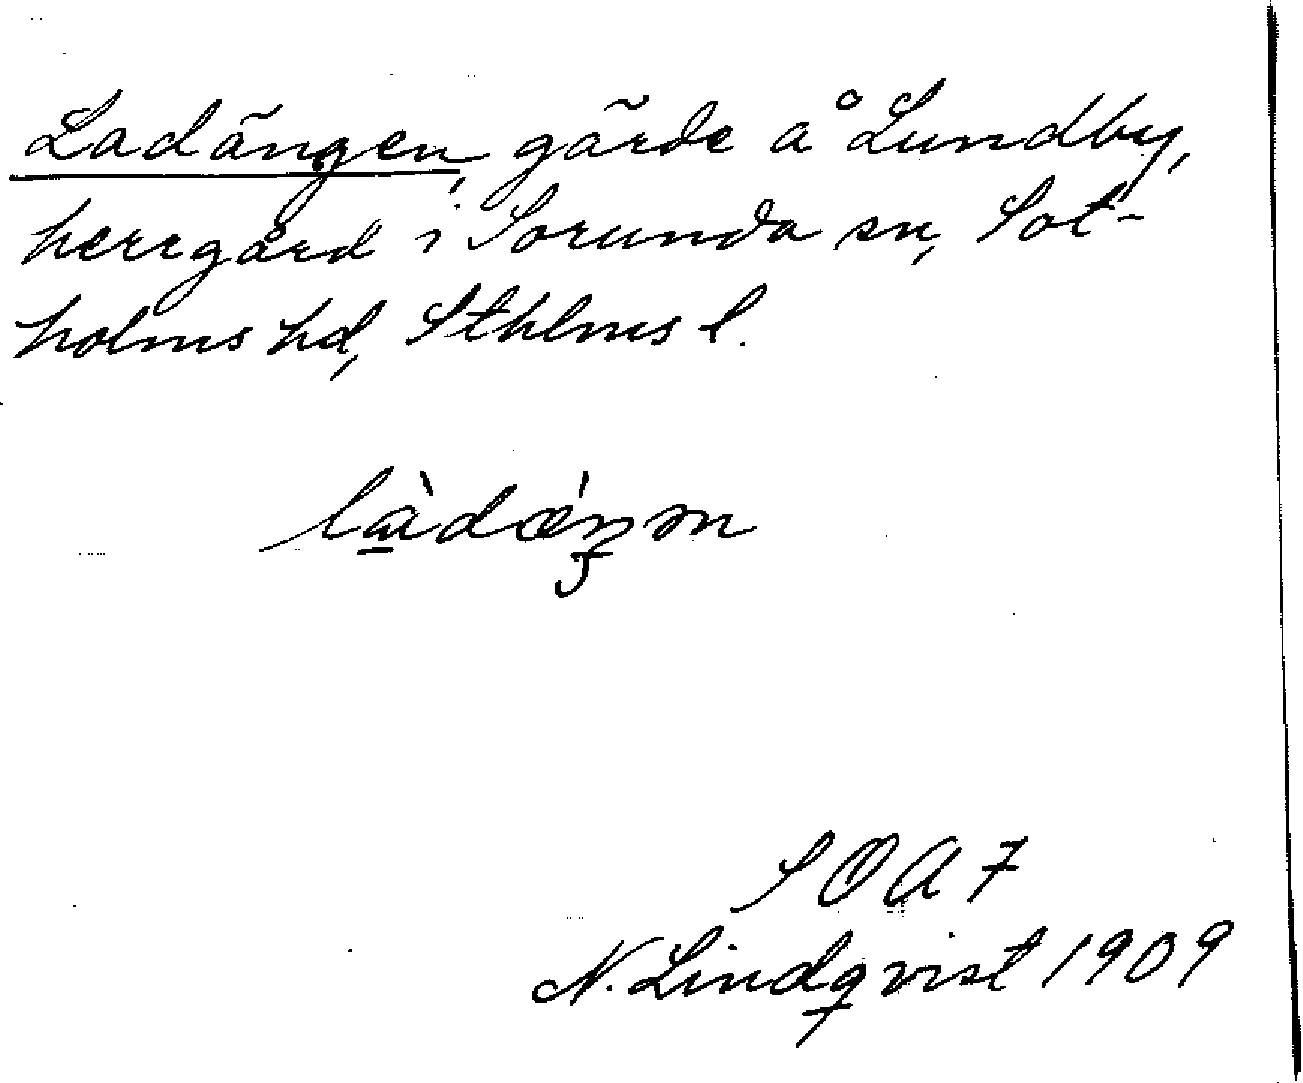 Ladängen, gärde å Lundby,
herrgård i Sorunda sn, Sot-
holms hd, Sthlms l.
làdǽŋən
SOA 7
N. Lindqvist 1909